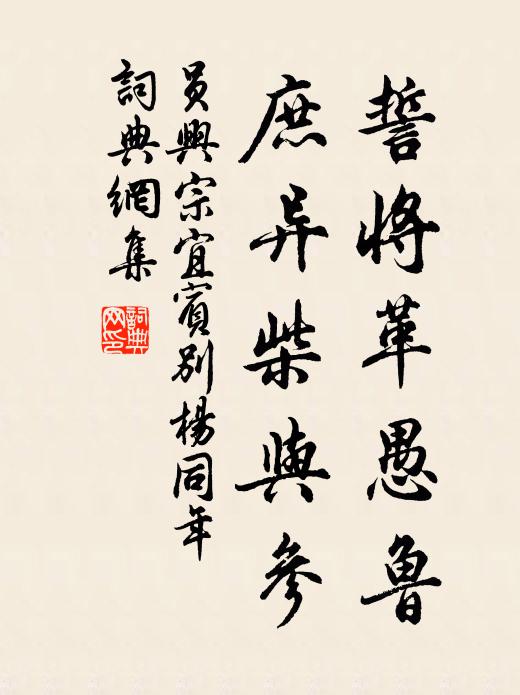 誓將革愚魯
庶异柴與參
員興宗宜賓別楊同年
詞典網集
詞典網印